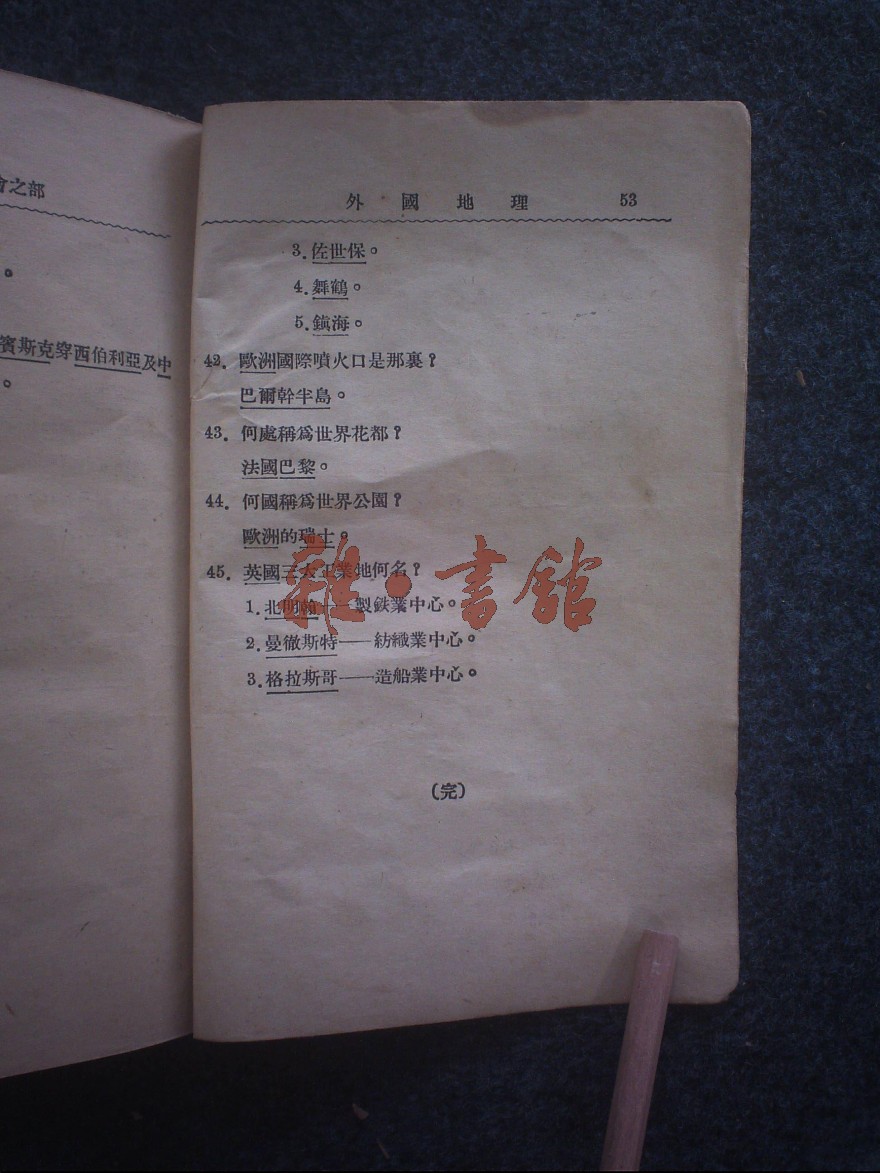 會之部
。
賓斯克穿西伯利亞及中
。
外國地理 53
3.佐世保。
4.舞鶴。
5.鎭海。
42. 歐洲國際噴火口是那裏?
巴爾幹半島。
43. 何處稱爲世界花都?
法國巴黎。
44. 何國稱爲世界公園?
歐洲的瑞士。
45. 英國三大工業地何名?
1.北明翰——製鉄業中心。
2.曼徹斯特——紡織業中心。
3.格拉斯哥——造船業中心。
(完)
雜·書館